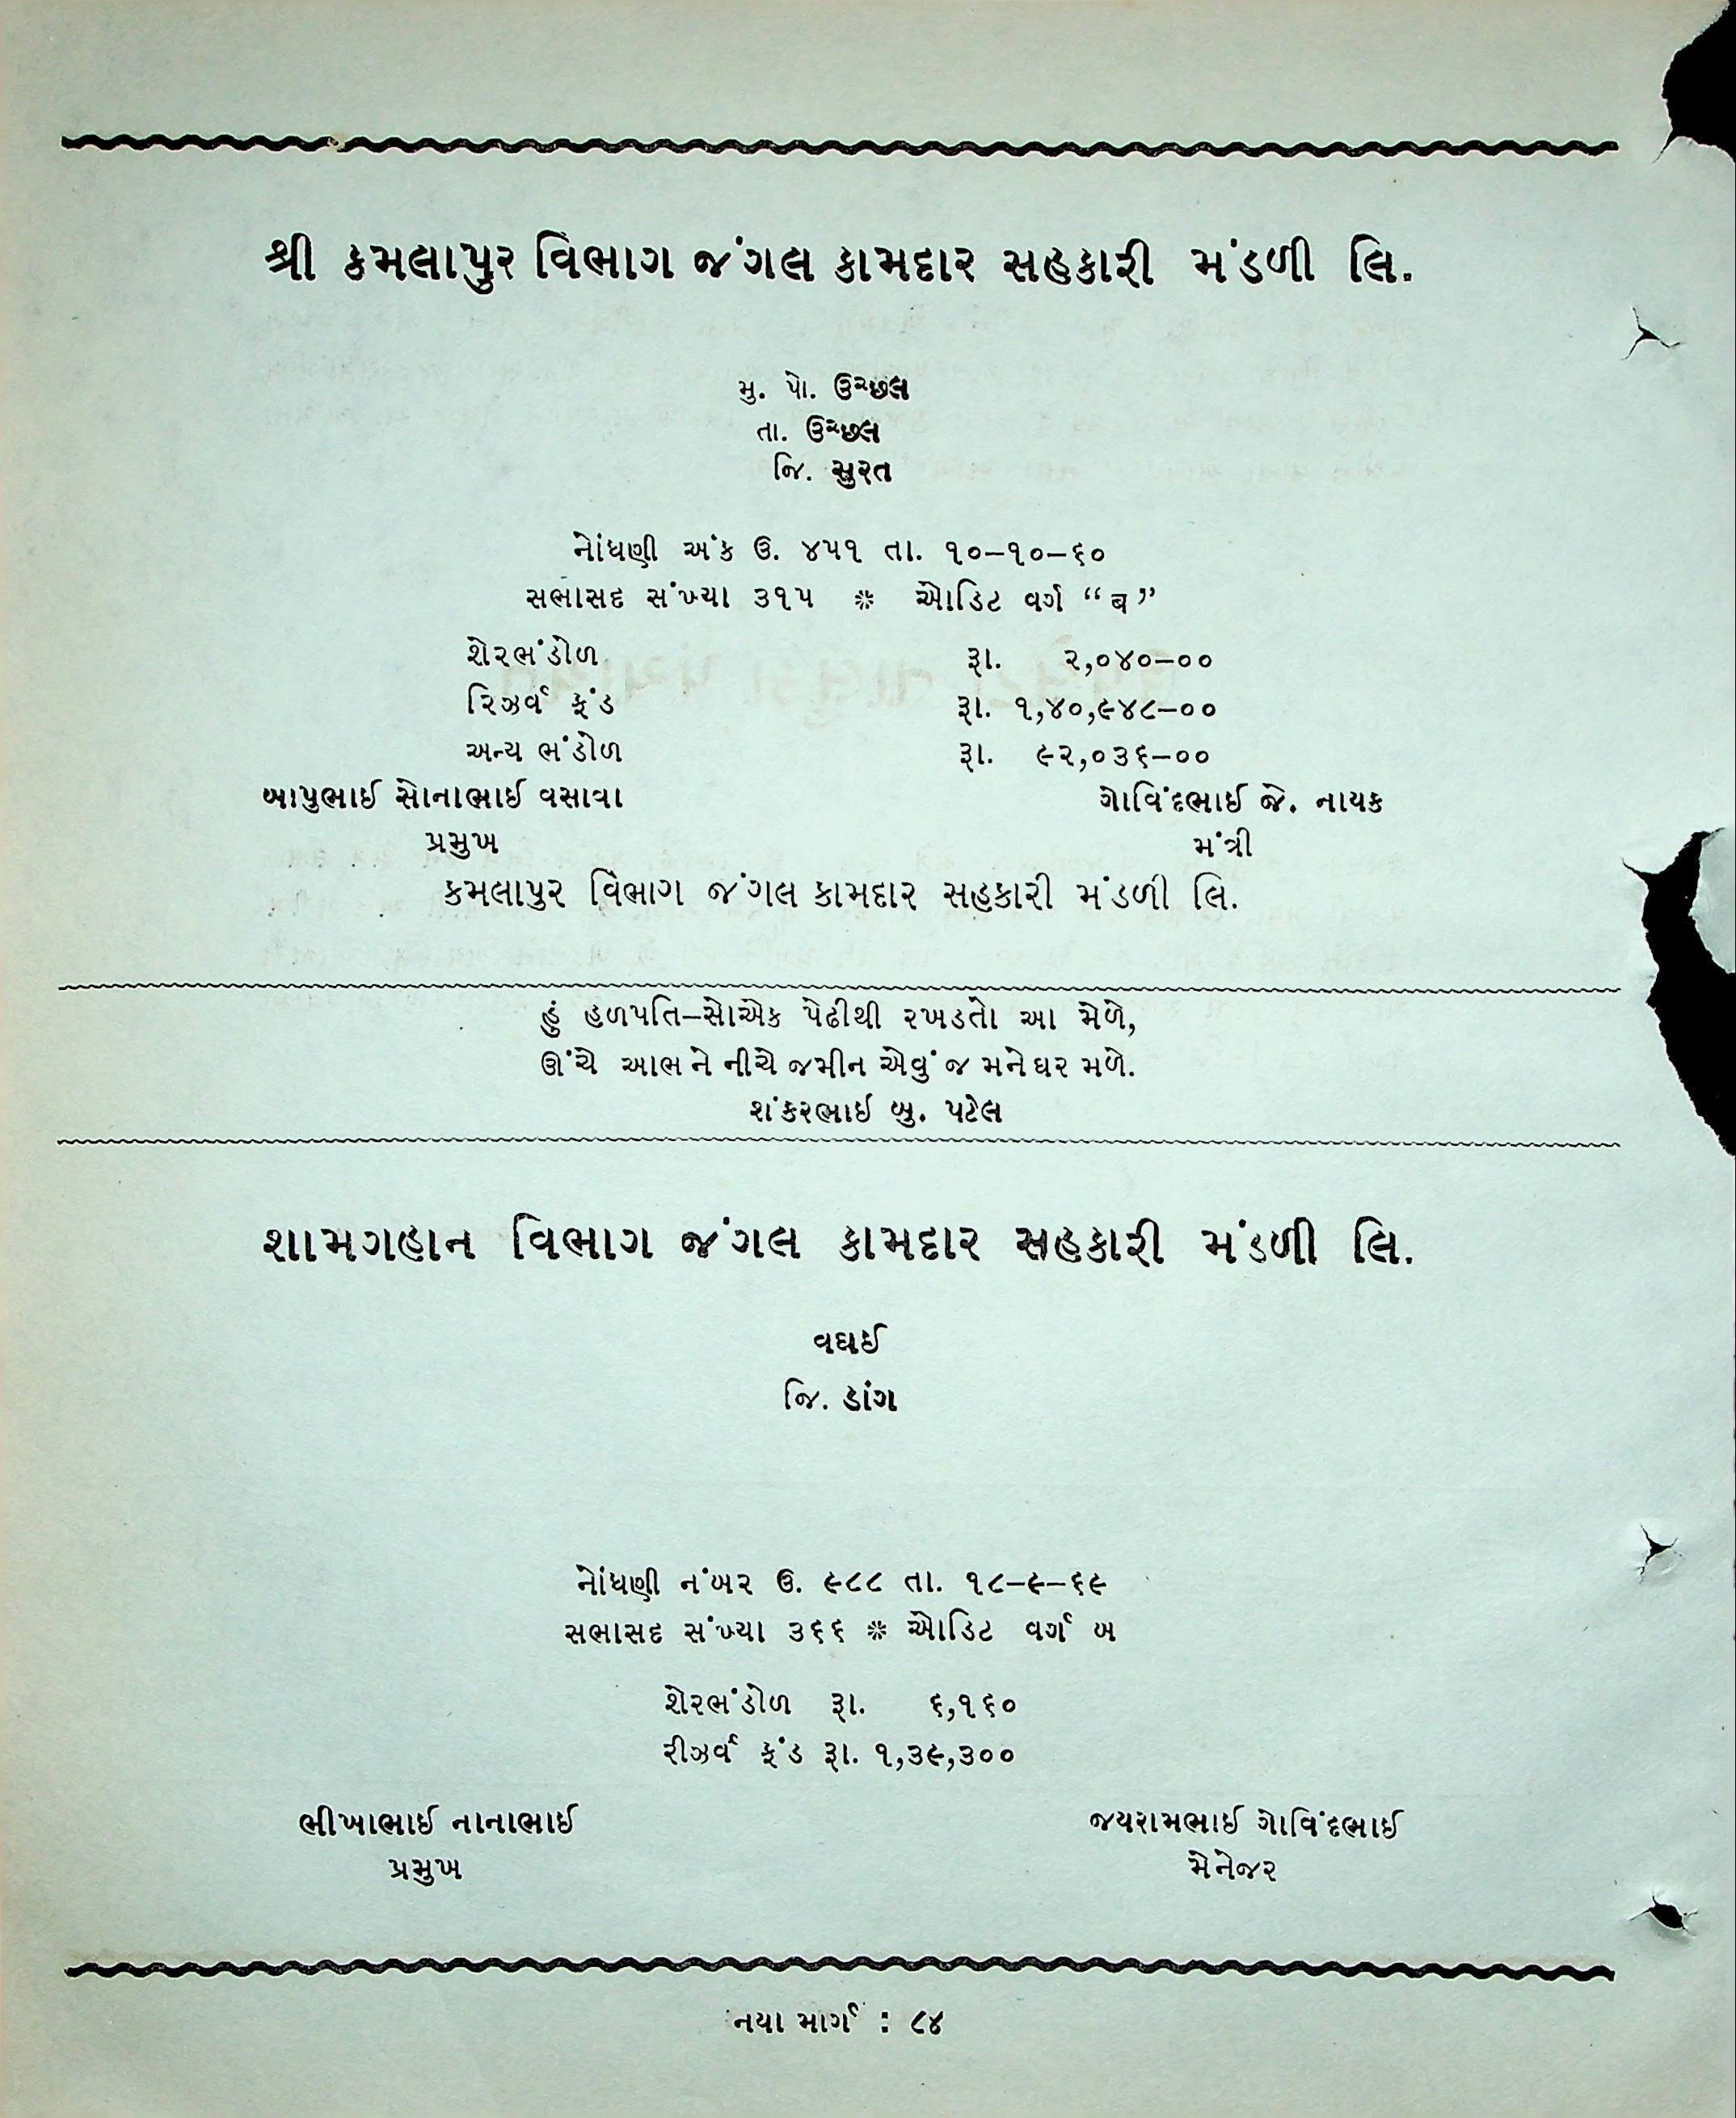 શ્રી કમલાપુર વિભાગ જંગલ કામદાર સહકારી મંડળી લિ.
મુ. પો. ઉચ્છલ
તા. ઉચ્છલ
જિ. સુરત
નોંધણી અંક ઉ. ૪૫૧ તા. ૧૦–૧૦–૬૦
સભાસદ સંખ્યા ૩૧૫ * ઓડિટ વર્ગ “ब”
શેરભંડોળ રૂા. ૨,૦૪૦–૦૦
રિઝર્વ ફંડ રૂા. ૧,૪૦,૯૪૮–૦૦
અન્ય ભંડોળ રૂા. ૯૨,૦૩૬–૦૦
બાપુભાઈ સોનાભાઈ વસાવા ગોવિંદભાઈ જે. નાયક
પ્રમુખ મંત્રી
કમલાપુર વિભાગ જંગલ કામદાર સહકારી મંડળી લિ.
હું હળપતિ–સોએક પેઢીથી રખડતો આ મેળે,
ઊંચે આભ ને નીચે જમીન એવું જ મને ઘર મળે.
શંકરભાઈ બુ. પટેલ
શામગહાન વિભાગ જંગલ કામદાર સહકારી મંડળી લિ.
વઘઈ
જિ. ડાંગ
નોંધણી નંબર ઉ. ૯૮૮ તા. ૧૮–૯–૬૯
સભાસદ સંખ્યા ૩૬૬ * ઓડિટ વર્ગ બ
શેરભંડોળ રૂા. ૬,૧૬૦
રીઝર્વ ફંડ રૂા. ૧,૩૯,૩૦૦
ભીખાભાઈ નાનાભાઈ જયરામભાઈ ગોવિંદભાઈ
પ્રમુખ મેનેજર
નયા માર્ગ : ૮૪